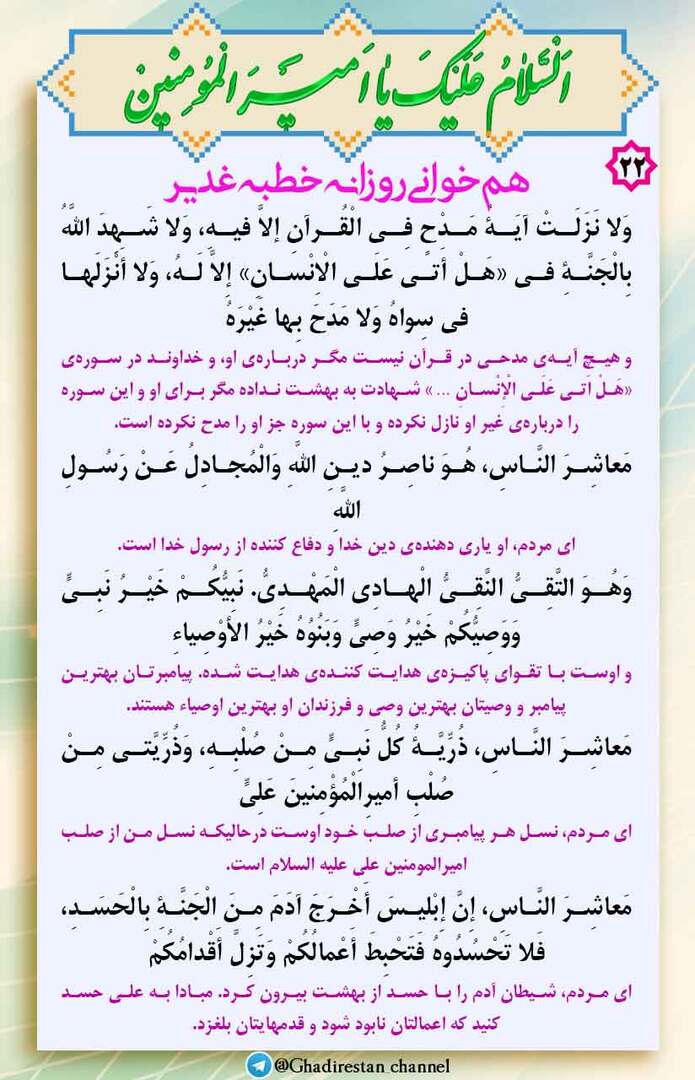 اَلسَّلامُ عَلَیْکَ یا اَمیرَالْمُومِنینَ
۲۲
هم خوانی روزانه خطبه غدیر
وَلا نَزَلَتْ آیَةُ مَدْحٍ فِی الْقُرآنِ إلاَّ فیهِ، وَلا شَهِدَ اللَّهُ
بِالْجَنَّةِ فی «هَلْ أتی عَلَی الْاِنْسانِ» إلاَّ لَهُ، وَلا أنْزَلَها
فی سِواهُ وَلا مَدَحَ بِها غَیْرَهُ
و هیچ آیه‌ی مدحی در قرآن نیست مگر درباره‌ی او، و خداوند در سوره‌ی
«هَلْ اَتی عَلَی الْاِنْسانِ ...» شهادت به بهشت نداده مگر برای او و این سوره
را درباره‌ی غیر او نازل نکرده و با این سوره جز او را مدح نکرده است.
مَعاشِرَ النَّاسِ، هُوَ ناصِرُ دینِ اللَّهِ وَالْمُجادِلُ عَنْ رَسُولِ
اللَّهِ
ای مردم، او یاری دهنده‌ی دین خدا و دفاع کننده از رسول خدا است.
وَهُوَ التَّقِیُّ النَّقِیُّ الْهادِی الْمَهْدِیُّ. نَبِیُّکُمْ خَیْرُ نَبِیٍّ
وَوَصِیُّکُمْ خَیْرُ وَصِیٍّ وَبَنُوهُ خَیْرُ الأوْصِیاءِ
و اوست با تقوای پاکیزه‌ی هدایت کننده‌ی هدایت شده. پیامبرتان بهترین
پیامبر و وصیتان بهترین وصی و فرزندان او بهترین اوصیاء هستند.
مَعاشِرَ النَّاسِ، ذُرِّیَّةُ کُلُّ نَبِیٍّ مِنْ صُلْبِهِ، وَذُرِّیَّتی مِنْ
صُلْبِ أمیرِالْمُؤْمِنینَ عَلِیٍّ
ای مردم، نسل هر پیامبری از صلب خود اوست درحالیکه نسل من از صلب
امیرالمومنین علی علیه السلام است.
مَعاشِرَ النَّاسِ، إنَّ إبْلیسَ أخْرَجَ آدَمَ مِنَ الْجَنَّةِ بِالْحَسَدِ،
فَلا تَحْسُدُوهُ فَتَحْبِطَ أعْمالُکُمْ وَتَزِلَّ أقْدامُکُمْ
ای مردم، شیطان آدم را با حسد از بهشت بیرون کرد. مبادا به علی حسد
کنید که اعمالتان نابود شود و قدمهایتان بلغزد.
@Ghadirestan_channel